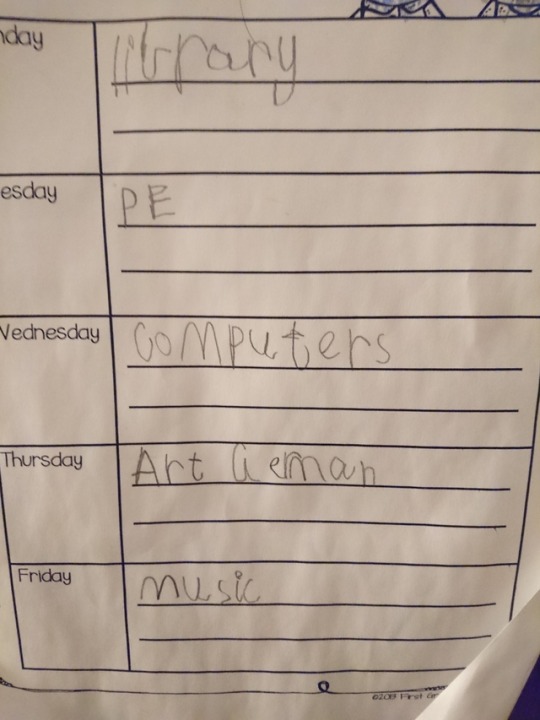 nday
library
esday
PE
Wednesday
computers
Thursday
Art Geman
Friday
music
©2013 First Gr